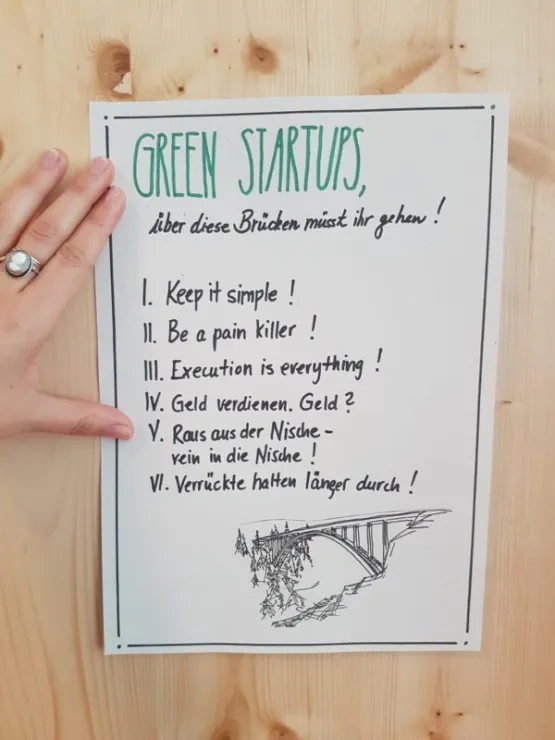 GREEN STARTUPS,
über diese Brücken müsst ihr gehen!
I. Keep it simple!
II. Be a pain killer!
III. Execution is everything!
IV. Geld verdienen. Geld?
V. Raus aus der Nische -
rein in die Nische!
VI. Verrückte halten länger durch!